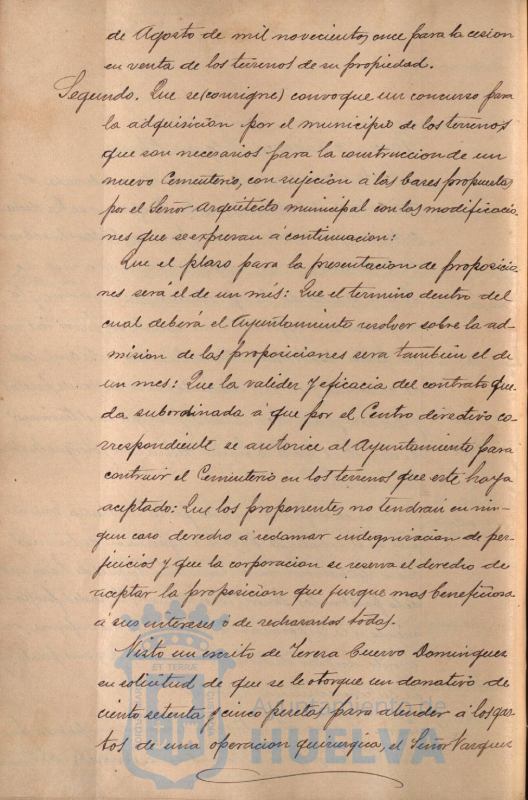 de Agosto de mil novecientos once para la cesion
en venta de los terrenos de su propiedad.
Segundo. Que se (consigne) convoque un concurso para
la adquisicion por el municipio de los terrenos
que son necesarios para la construccion de un
nuevo Cementerio, con sujecion á las bases propuestas
por el Señor Arquitecto municipal con las modificacio-
nes que se expresan á continuacion:
Que el plazo para la presentacion de proposicio-
nes será el de un més: Que el termino dentro del
cual deberá el Ayuntamiento resolver sobre la ad-
mision de las proposiciones sera tambien el de
un mes: Que la validez y eficacia del contrato que-
da subordinada á que por el Centro directivo co-
rrespondiente se autorice al Ayuntamiento para
contruir el Cementerio en los terrenos que esté haya
aceptado: Que los proponentes no tendrán en nin-
gun caso derecho á reclamar indegnizacion de per-
juicios y que la corporacion se reserva el derecho de
aceptar la proposicion que juzgue mas beneficiosa
á sus intereses o de rechazarlas todas.
Visto un escrito de Teresa Cuervo Dominguez
en solicitud de que se le otorgue un donativo de
ciento setenta y cinco pesetas para atender á los gas-
tos de una operacion quirurgica, el Señor Vazquez
ET TERRA
Ayuntamiento de
HUELVA